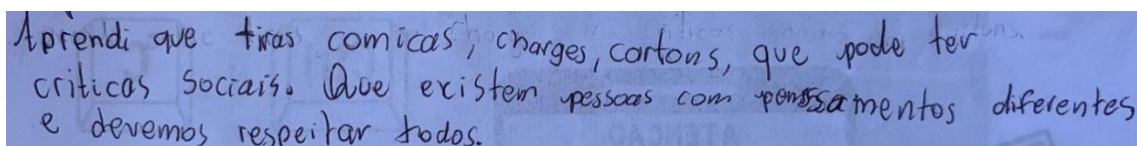 Aprendi que tiras comicas, charges, cartons, que pode ter
criticas sociais. Que existem pessoas com pensamentos diferentes
e devemos respeitar todos.